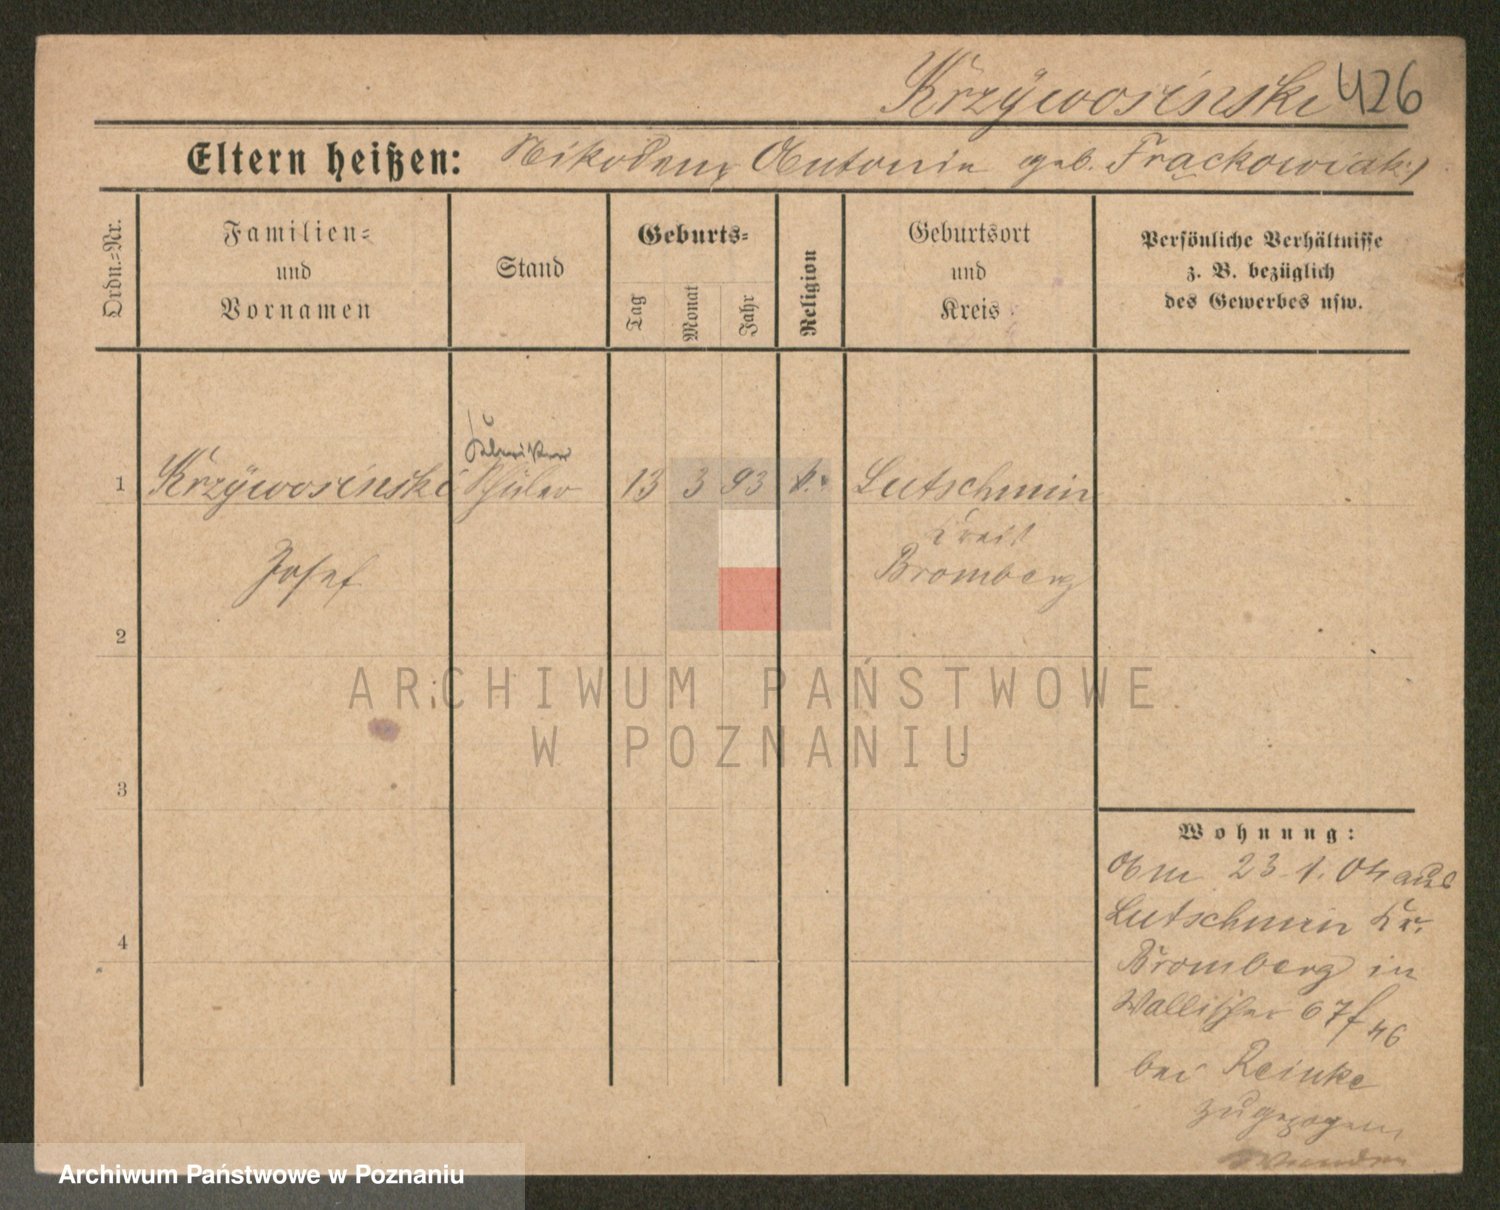 Krzÿwosinski 426
Eltern heißen: Nikodem, Antonie geb. Frąckowiak
Ordn.-Nr.
Familien-
und
Vornamen
Stand
Geburts-
Tag
Monat
Jahr
Religion
Geburtsort
und
Kreis
Persönliche Verhältnisse
z. B. bezüglich
des Gewerbes usw.
1 Krzÿwosinski Schüler 13 3 93 k. Lutschmin
Kreis
Josef Bromberg
2
ARCHIWUM PAŃSTWOWE
W POZNANIU
3
4
Wohnung:
Am 23 1. 04 aus
Lutschmin Kr.
Bromberg in
Wallischei 67/46
bei Reinke
zugezogen
Archiwum Państwowe w Poznaniu